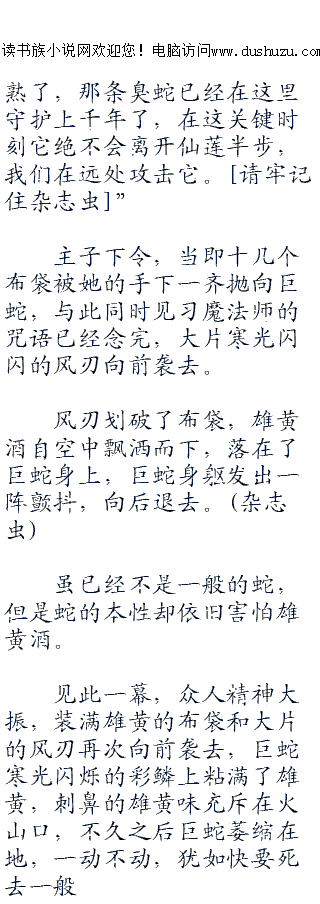 读书族小说网欢迎您！电脑访问www.dushuzu.com
熟了，那条臭蛇已经在这里
守护上千年了，在这关键时
刻它绝不会离开仙莲半步，
我们在远处攻击它。[请牢记
住杂志虫]”
主子下令，当即十几个
布袋被她的手下一齐抛向巨
蛇，与此同时见习魔法师的
咒语已经念完，大片寒光闪
闪的风刃向前袭去。
风刃划破了布袋，雄黄
酒自空中飘洒而下，落在了
巨蛇身上，巨蛇身躯发出一
阵颤抖，向后退去。(杂志
虫)
虽已经不是一般的蛇，
但是蛇的本性却依旧害怕雄
黄酒。
见此一幕，众人精神大
振，装满雄黄的布袋和大片
的风刃再次向前袭去，巨蛇
寒光闪烁的彩鳞上粘满了雄
黄，刺鼻的雄黄味充斥在火
山口，不久之后巨蛇萎缩在
地，一动不动，犹如快要死
去一般